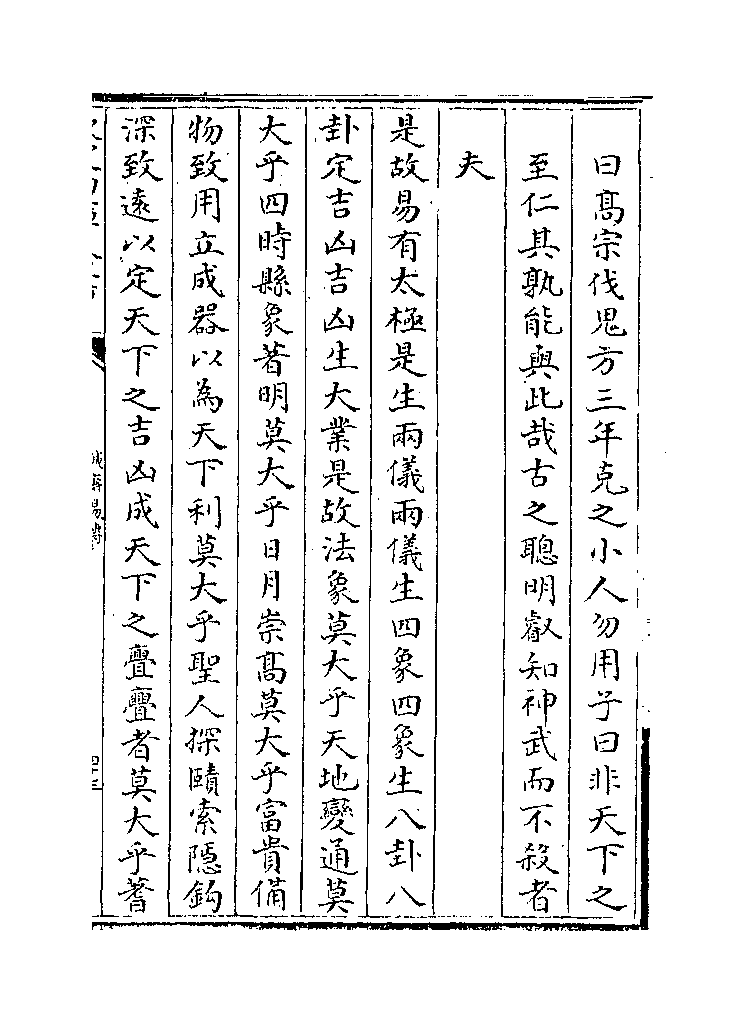 曰髙宗伐鬼方三年克之小人勿用子曰非天下之
至仁其孰能與此哉古之聰明叡知神武而不殺者
夫
是故易有太極是生兩儀兩儀生四象四象生八卦八
卦定吉凶吉凶生大業是故法象莫大乎天地變通莫
大乎四時縣象著明莫大乎日月崇髙莫大乎富貴備
物致用立成器以為天下利莫大乎聖人探賾索隠鈎
深致逺以定天下之吉凶成天下之亹亹者莫大乎蓍
易傳